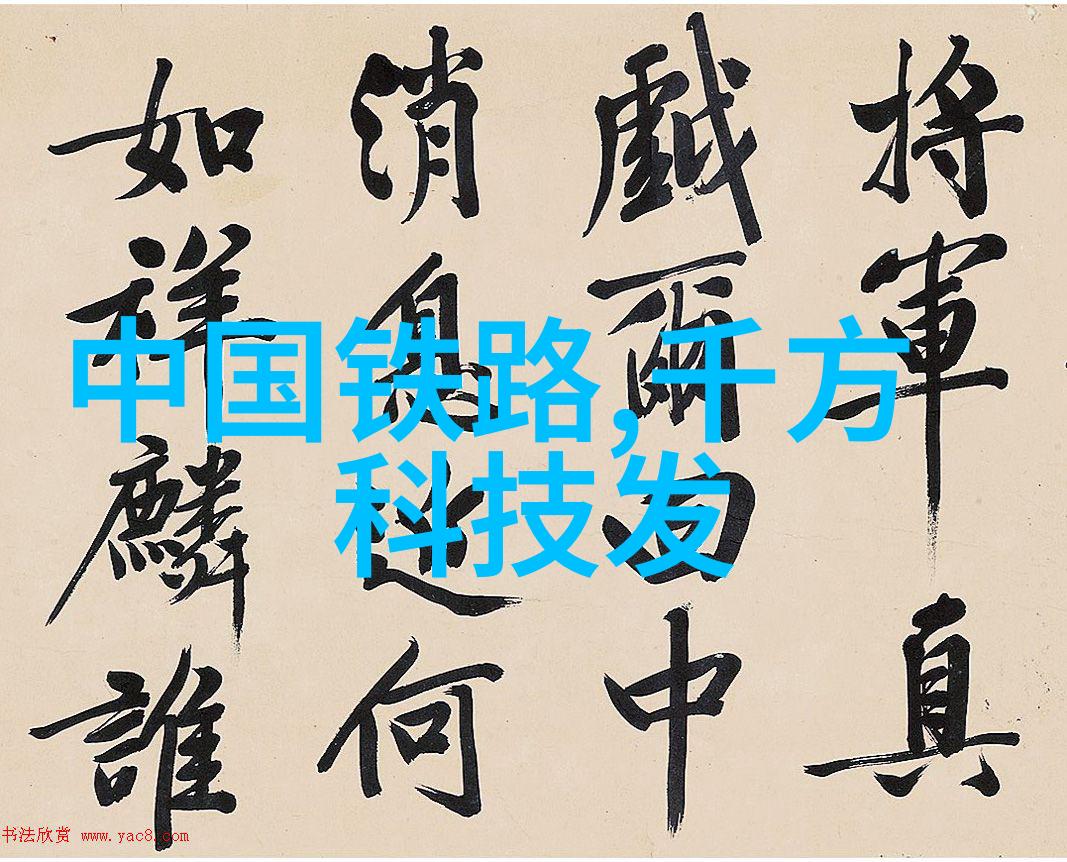 将軍真
戱爾中
消息近何
如祥麟誰
中国铁路,千方
科技发
书法欣赏 www.yac8.com